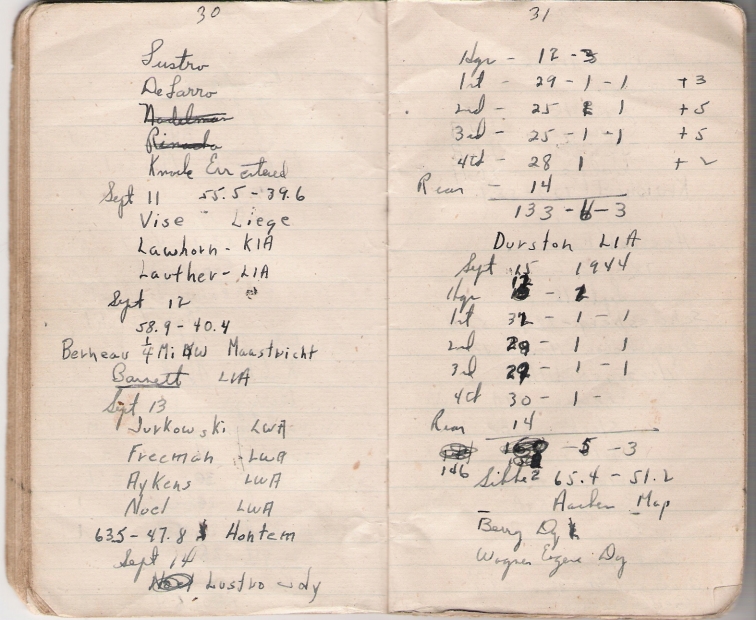 30
Lustro
DeSarro
Nadelman
Rinado
Knock Err entered
Sept 11 55.5 - 39.6
Vise Liege
Lawhorn - KIA
Lauther - LIA
Sept 12
58.9 - 40.4
Berneau 1/4 Mi NW Maastricht
Barnett LIA
Sept 13
Jurkowski LWA
Freeman - LWA
Aykens LWA
Noel LWA
63.5 - 47.8 Hontem
Sept 14
Noel Lustro - dy
31
Hqr - 12 - 3
1st - 29 - 1 - 1 + 3
2nd - 25 1 + 5
3rd - 25 - 1 - 1 + 5
4th - 28 1 + 2
Rear - 14
133 - 6 - 3
Durston LIA
Sept 15 1944
Hqr 12 - 2
1st 32 - 1 - 1
2nd 29 - 1 1
3rd 29 - 1 - 1
4th 30 - 1 -
Rear 14
- 5 - 3
146
65.4 - 51.2
Aachen Map
Berry Dy
Wagner Eugene Dy